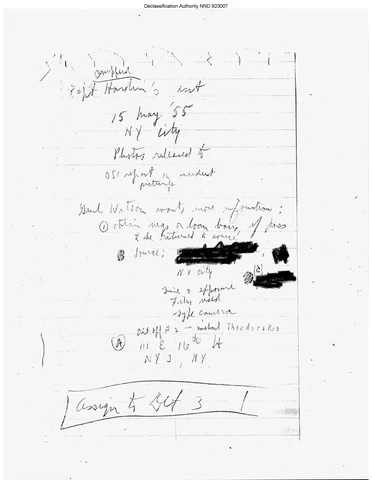 Declassification Authority NND 923007
Capt Hardin's
15 May '55
NY city
Photos released to
OSI report on incident
pictures
Genl Watson wants more information:
① obtain negs on loan basis, if poss
& be returned to source
Ⓑ Source:
NY city
Time & exposure
Film used
Type camera
#2 — Michael Theodorakos
Ⓐ 111 E 16th St
NY 3, NY
Assign to Det 3